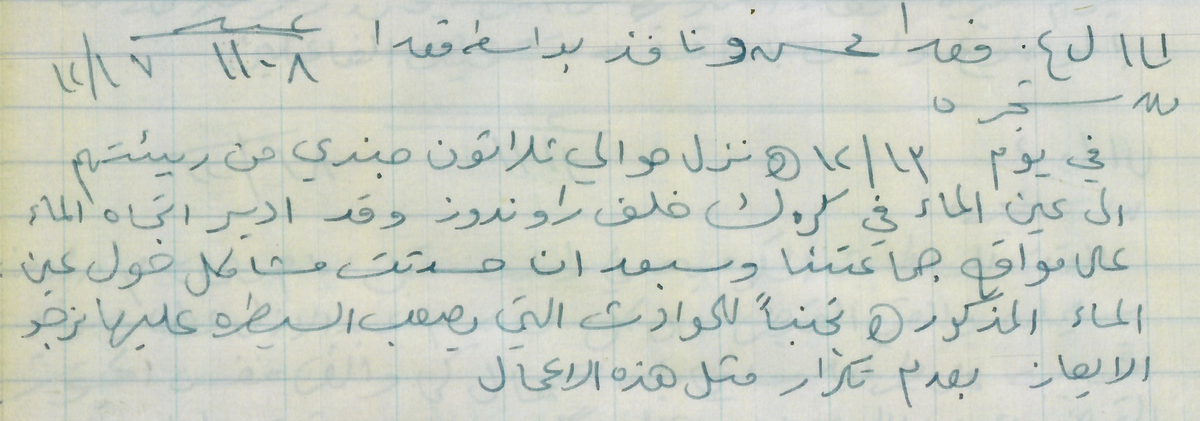 فقدا محسن ونافذ بواسطه فقدا ١١٠٨ ١٢/١٧
في يوم ١٢/١٣ نزل حوالي ثلاثون جندي من ربيئتهم
الى عين الماء في كرك خلف راوندوز وقد ادير اتجاه الماء
على مواقع جماعتنا وسبعد ان حدثت مشاكل حول عين
الماء المذكور تجنباً للحوادث التي يصعب السيطره عليها نرجو
الايعاز بعدم تكرار مثل هذه الاعمال